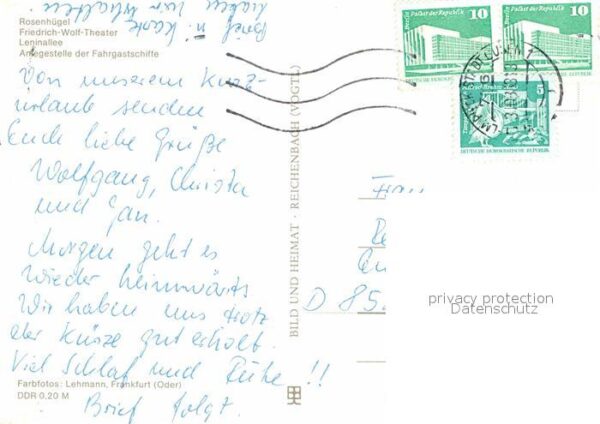 Rosenhügel
Friedrich-Wolf-Theater
Leninallee
Anlegestelle der Fahrgastschiffe
Brief u. Karte
haben wir erhalten.
Von unserem Kurz-
urlaub senden
Euch liebe Grüße
Wolfgang, Christa
und Jan.
Morgen geht es
wieder heimwärts
Wir haben uns trotz
der Kürze gut erholt.
Viel Schlaf und Ruhe !!
Brief folgt.
Farbfotos: Lehmann, Frankfurt (Oder)
DDR 0,20 M
BILD UND HEIMAT · REICHENBACH (VOGTL)
Berlin Palast der Republik
10
DEUTSCHE DEMOKRATISCHE REPUBLIK
Berlin Palast der Republik
10
DEUTSCHE DEMOKRATISCHE REPUBLIK
5
DEUTSCHE DEMOKRATISCHE REPUBLIK
D 85
privacy protection
Datenschutz